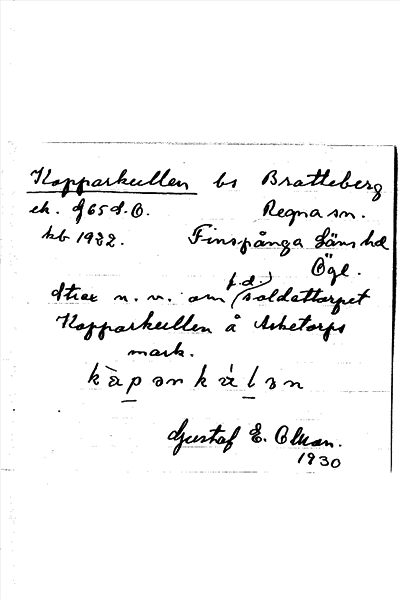 Kopparkullen bs Bratteberg
ek. J65d.O. Regna sn.
kb 1932. Finspånga Läns hd
Ögl.
f.d.
dtax n. v. om soldattorpet
Kopparkullen å Asketorps
mark.
Gustaf E. Olson.
1930